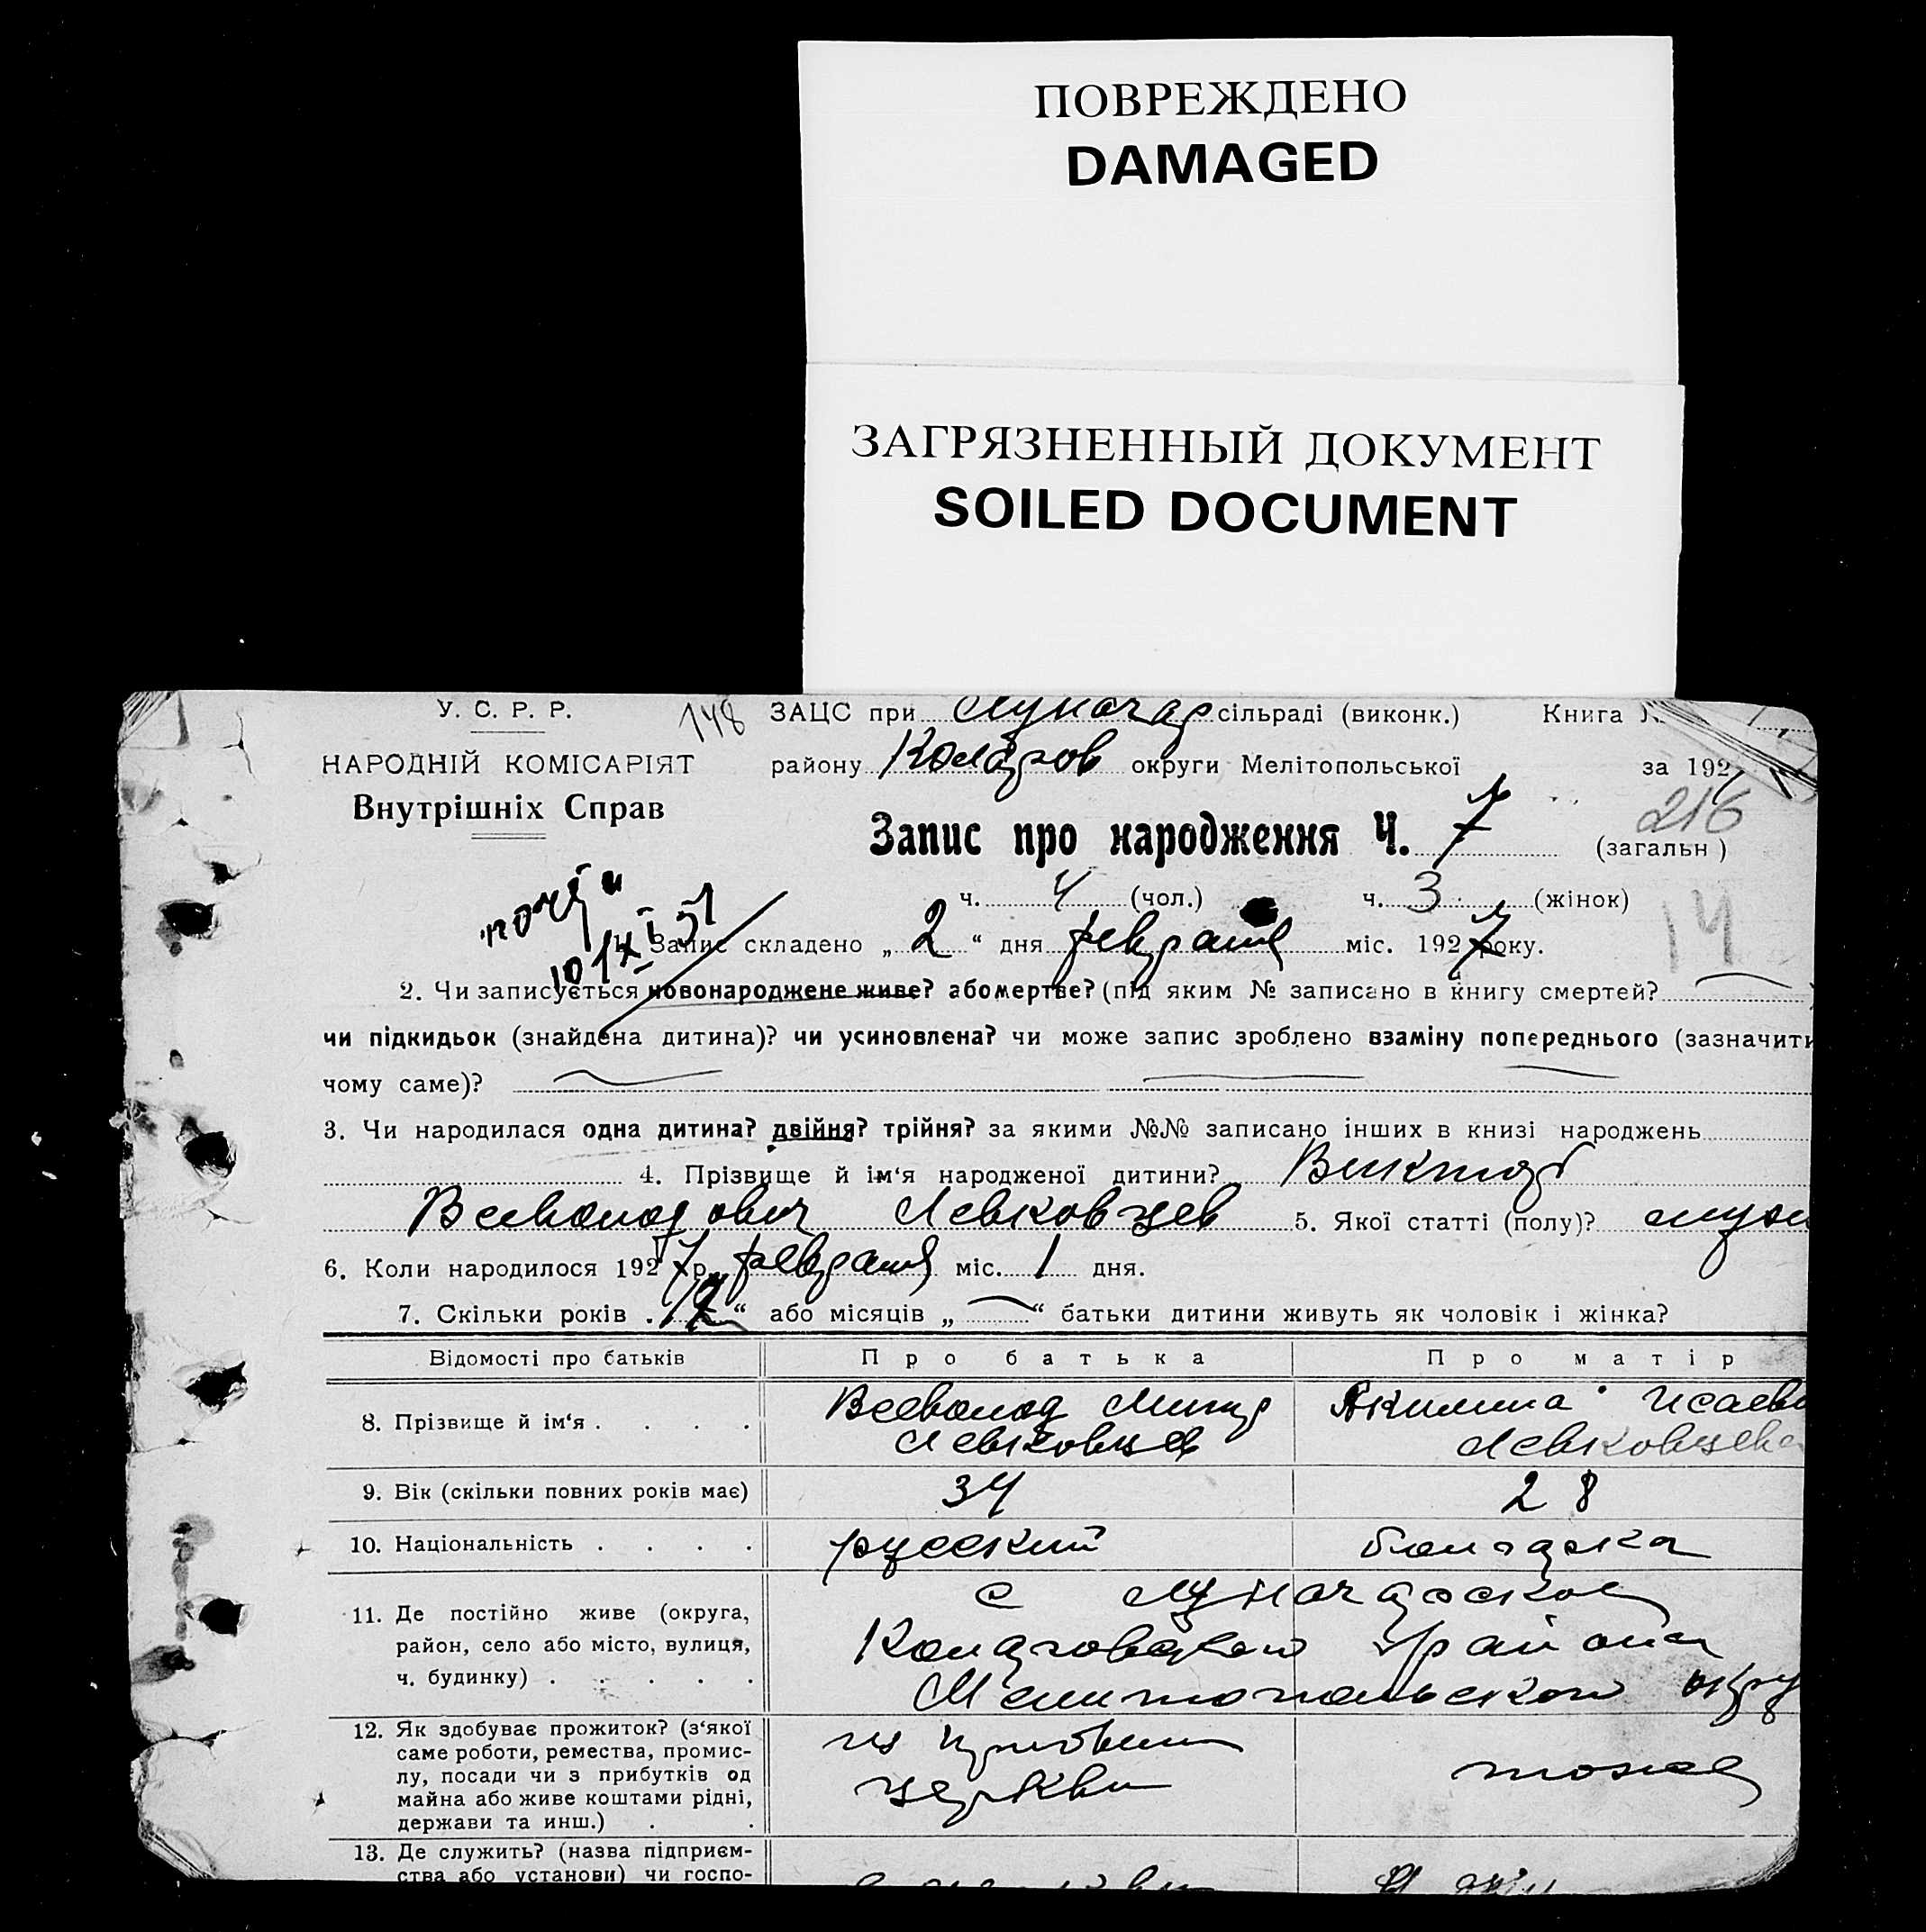 ПОВРЕЖДЕНО
DAMAGED
ЗАГРЯЗНЕННЫЙ ДОКУМЕНТ
SOILED DOCUMENT
У. С. Р. Р. 148 ЗАЦС при Луначар сільраді (виконк.) Книга
НАРОДНІЙ КОМІСАРІЯТ району Коларов округи Мелітопольської за 1927
Внутрішніх Справ
216
Запис про народження Ч. 7 (загальн)
ч. 4 (чол.) ч. 3 (жінок)
14
1. Запис складено „ 2 “ дня февраля міс. 1927 року.
2. Чи записується новонароджене живе? або мертве? (під яким № записано в книгу смертей?
чи підкидьок (знайдена дитина)? чи усиновлена? чи може запис зроблено взаміну попереднього (зазначити
чому саме)?
3. Чи народилася одна дитина? двійня? трійня? за якими №№ записано інших в книзі народжень
4. Прізвище й ім‘я народженої дитини? Виктор
Всеволодович Левковцев 5. Якої статті (полу)? муж
6. Коли народилося 1927 р. февраля міс. 1 дня.
7. Скільки років „ “ або місяців „ “ батьки дитини живуть як чоловік і жінка?
Відомості про батьків Про батька Про матір
8. Прізвище й ім‘я . . . . Всеволод Митр Акилина Исаевн
Левковцев Левковцева
9. Вік (скільки повних років має) 34 28
10. Національність . . . . русский болгарка
11. Де постійно живе (округа, с Луначарское
район, село або місто, вулиця, Коларовского района
ч. будинку) . . . . . Мелитопольской окру
12. Як здобуває прожиток? (з‘якої
саме роботи, ремества, промис-
лу, посади чи з прибутків од
майна або живе коштами рідні,
держави та инш.) . .
из прибыли
церкви тоже
13. Де служить? (назва підприєм-
ства або установи) чи госпо-